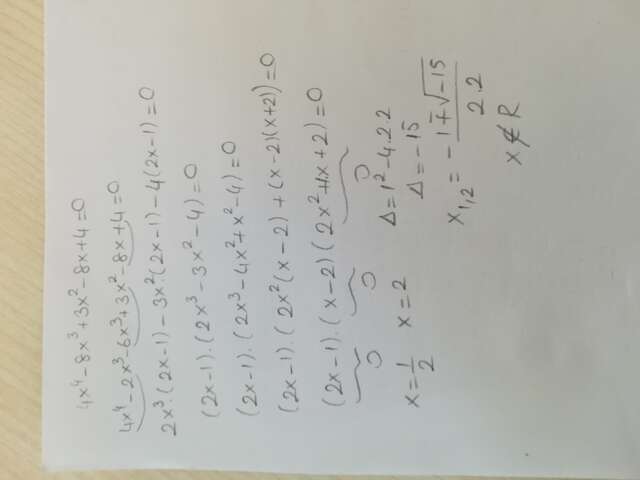 4x⁴-8x³+3x²-8x+4=0
4x⁴-2x³-6x³+3x²-8x+4=0
2x³.(2x-1)-3x²(2x-1)-4(2x-1)=0
(2x-1).(2x³-3x²-4)=0
(2x-1).(2x³-4x²+x²-4)=0
(2x-1).(2x²(x-2)+(x-2)(x+2))=0
(2x-1).(x-2)(2x²+1x+2)=0
0 0 0
x=1/2 x=2 Δ=1²-4.2.2
Δ=-15
x₁,₂=-1∓√-15/2.2
x∉R